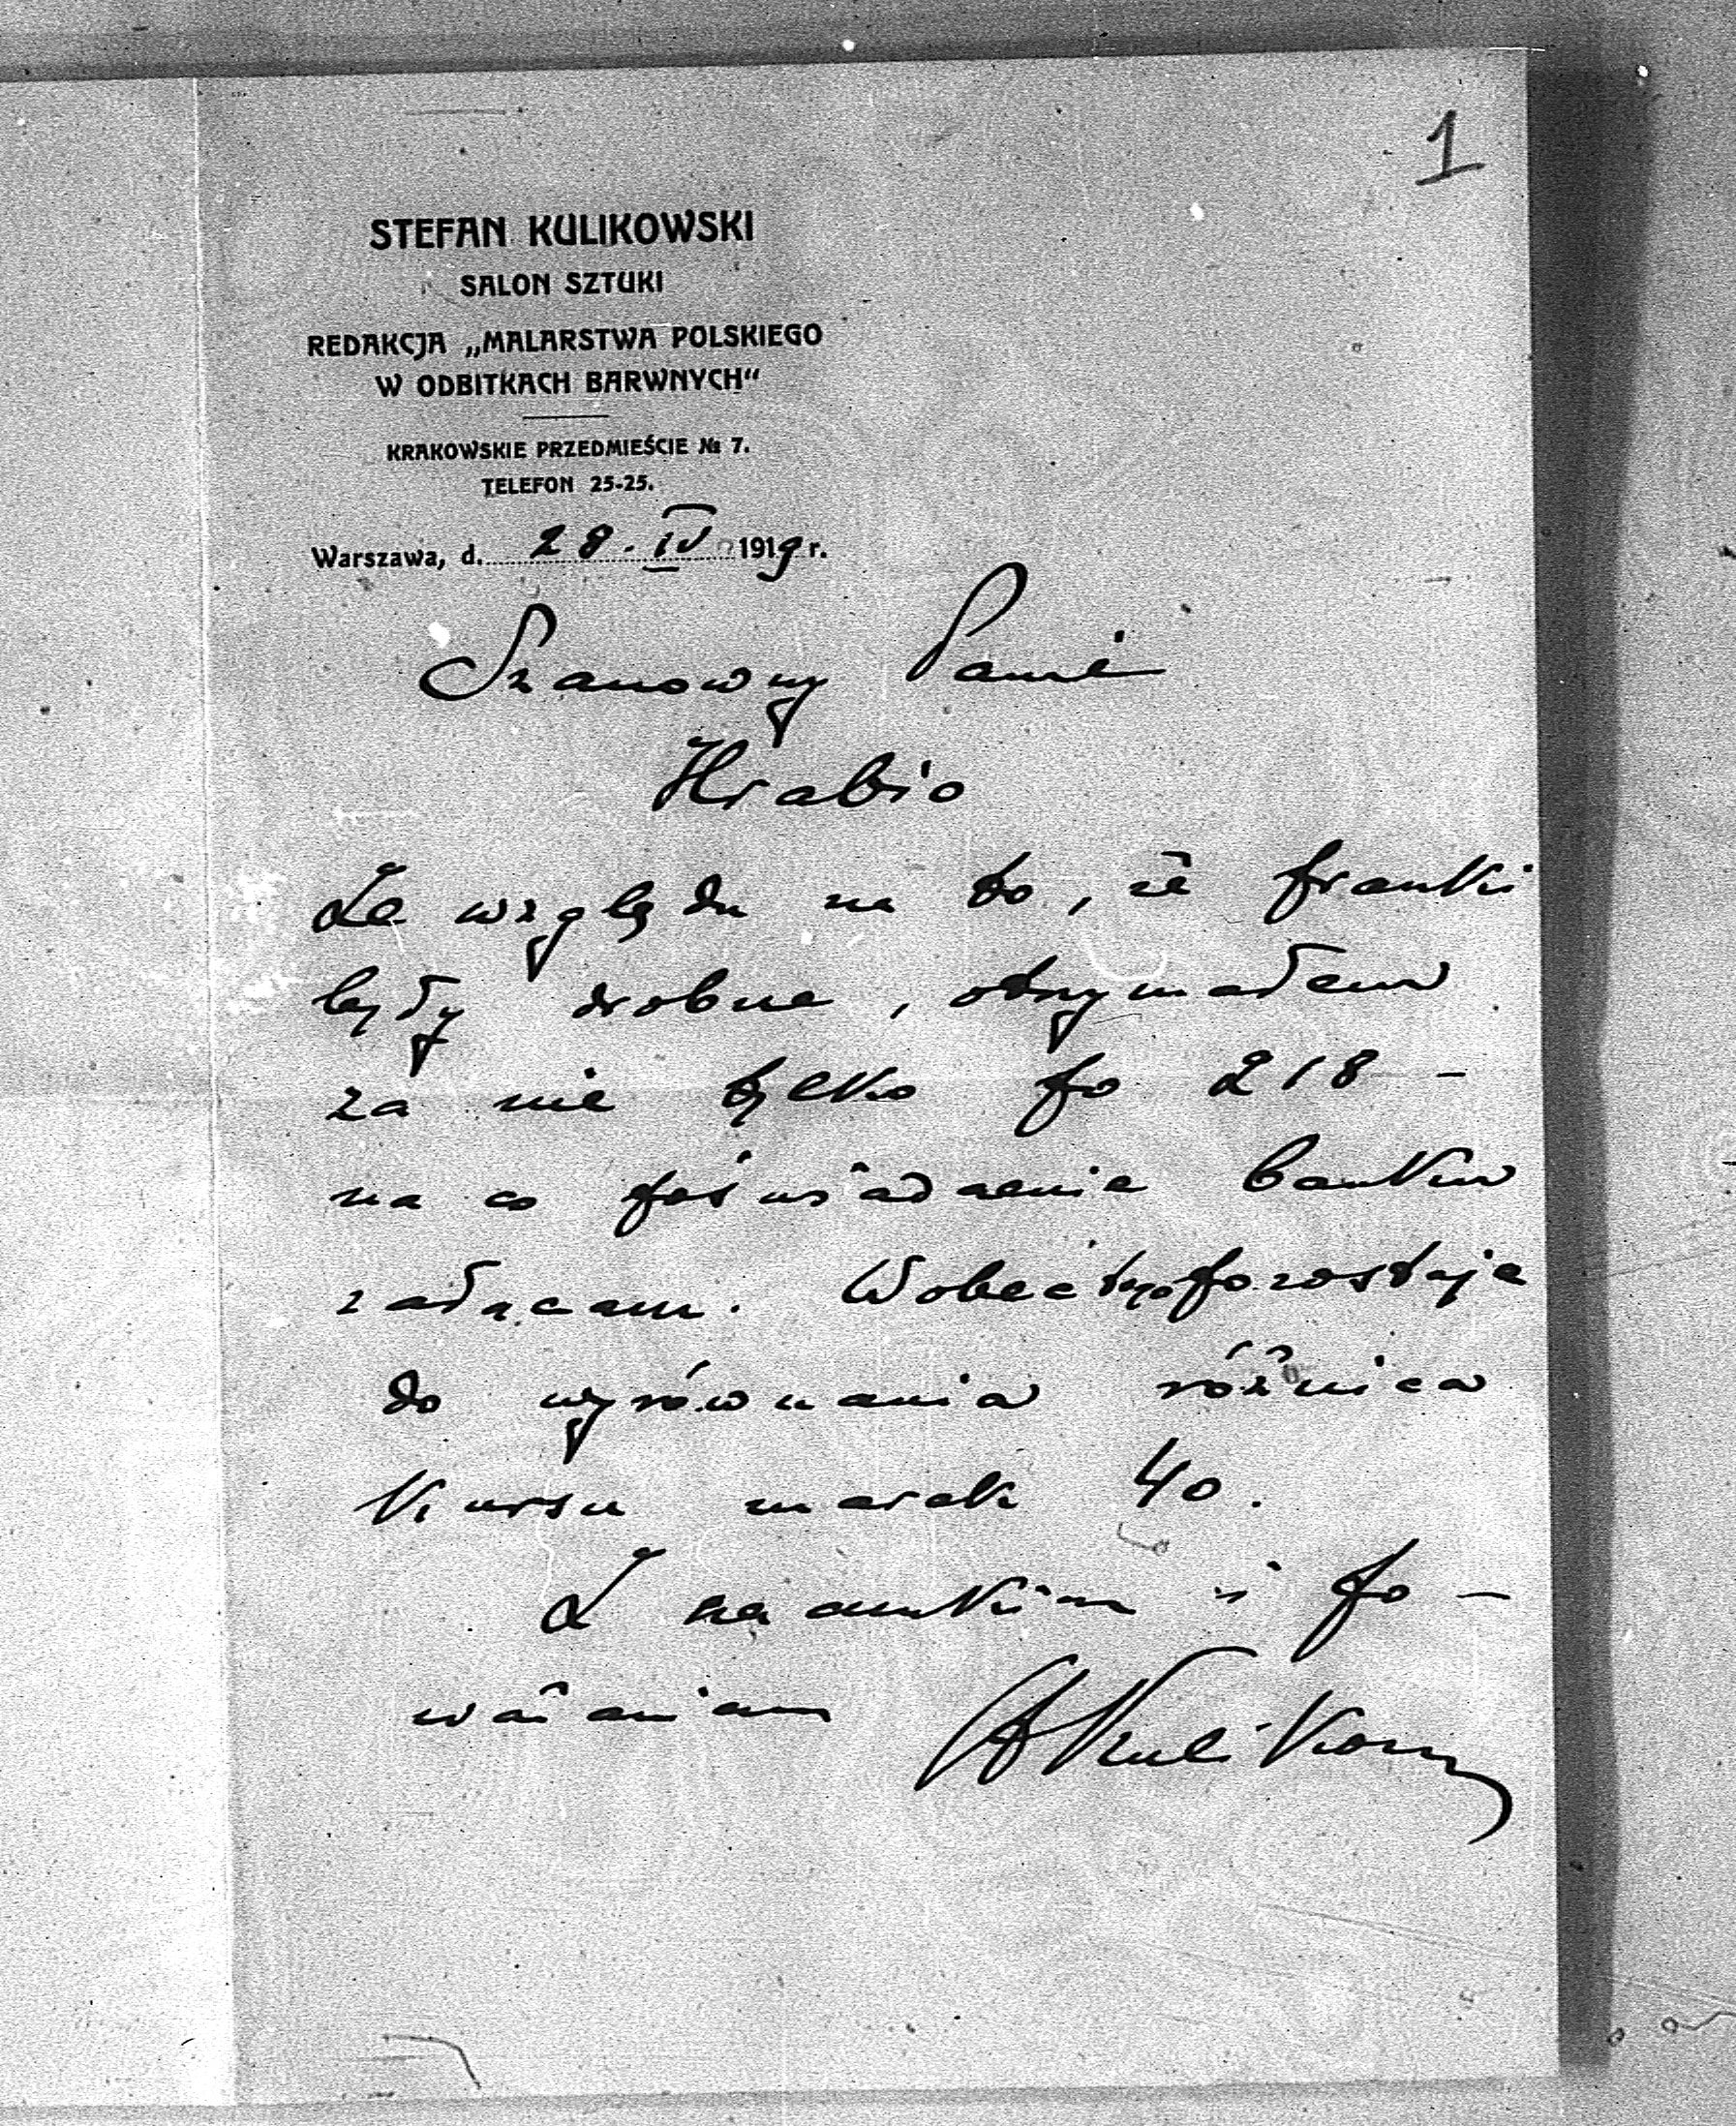 1
STEFAN KULIKOWSKI
SALON SZTUKI
REDAKCJA „MALARSTWA POLSKIEGO
W ODBITKACH BARWNYCH“
KRAKOWSKIE PRZEDMIEŚCIE № 7.
TELEFON 25-25.
Warszawa, d. 28. IV 1919 r.
Szanowny Panie
Hrabio
Ze względu na to, że franki
były drobne, otrzymałem
za nie tylko po 218 -
na co poświadczenie banku
załączam. Wobec tego pozostaje
do wyrównania różnica
Kursu marek 40.
Z szacunkiem i po-
ważaniem SKulikowski